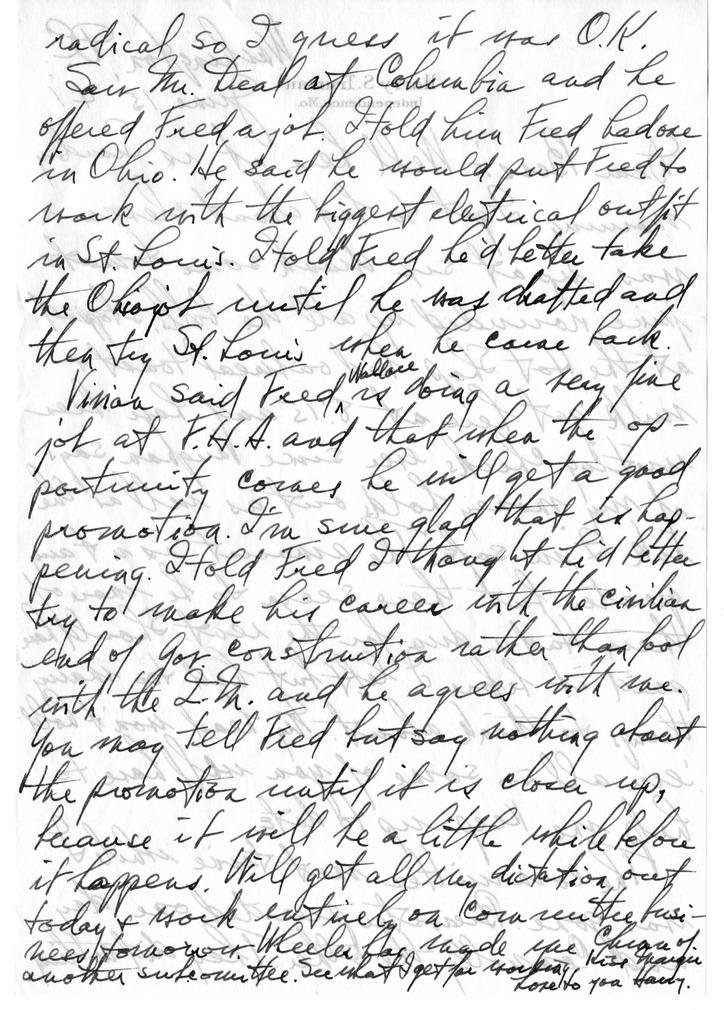 radical so I guess it was O.K.
Saw Mr. Deal at Columbia and he
offered Fred a job. I told him Fred had one
in Ohio. He said he would put Fred to
work with the biggest electrical outfit
in St. Louis. I told Fred he'd better take
the Ohio job until he was drafted and
then try St. Louis when he came back.
Vivian said Fred Wallace is doing a very fine
job at F.H.A. and that when the op-
portunity comes he will get a good
promotion. I'm sure glad that is hap-
pening. I told Fred I thought he'd better
try to make his career with the civilian
end of Gov. construction rather than fool
with the Q.M. and he agrees with me.
You may tell Fred but say nothing about
the promotion until it is closer up,
because it will be a little while before
it happens. Will get all my dictation out
today & work entirely on committee busi-
ness tomorrow. Wheeler has made me Chmn of
another subcommittee. See what I get for working. Kiss Margie
Love to you Harry.
Independence, Mo.